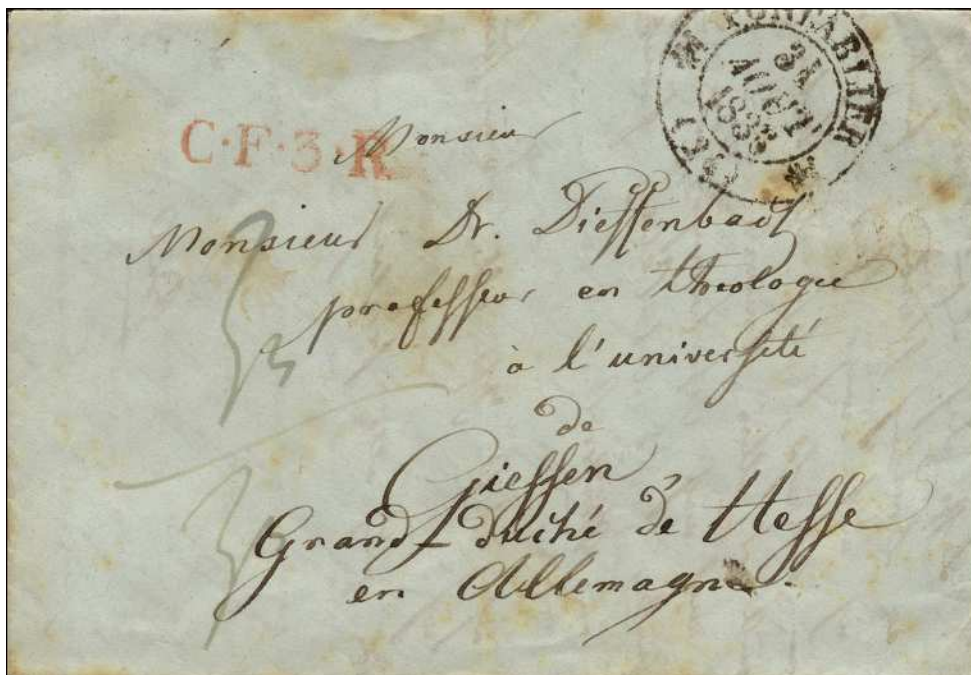 PONTARLIER
31
AOUT
1835
(24)
C·F·3·R.
Monsieur
Monsieur Dr. Dieffenbach
professeur en théologie
à l'université
de
Gieffen
Grand-duché de Heffe
en Allemagne.